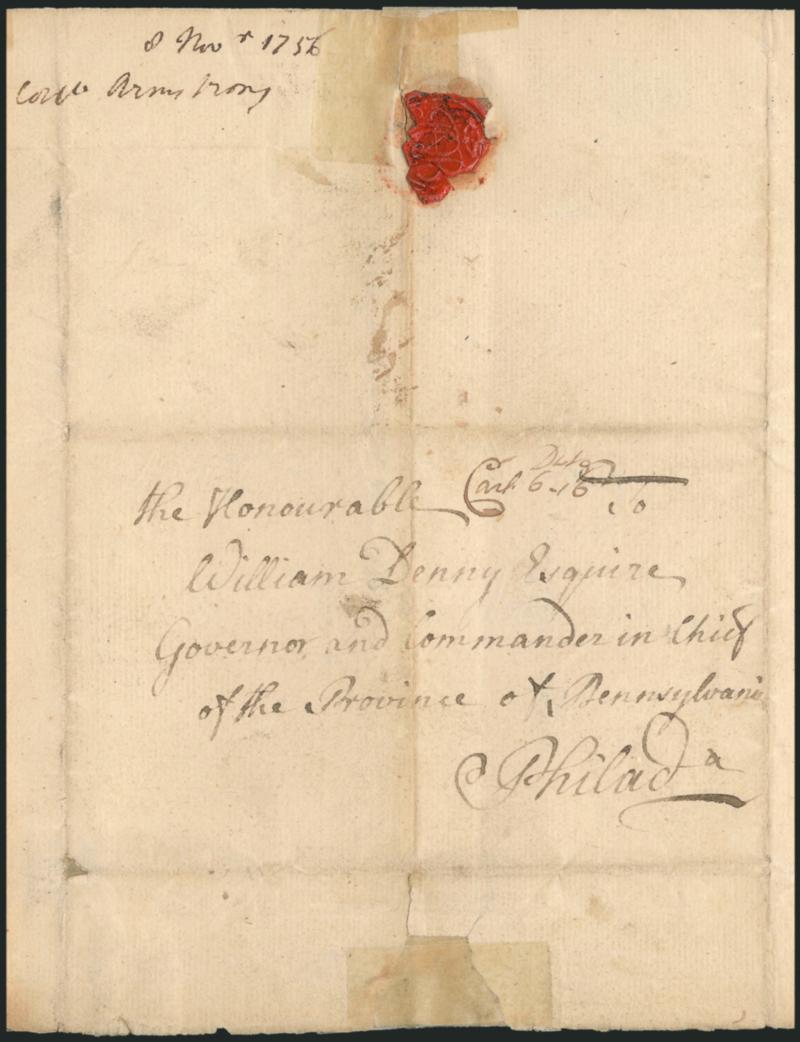 8 Novr 1756
Armstrong
the Honourable
William Denny Esquire
Governor and Commander in Chief
of the Province of Pennsylvani
Philada